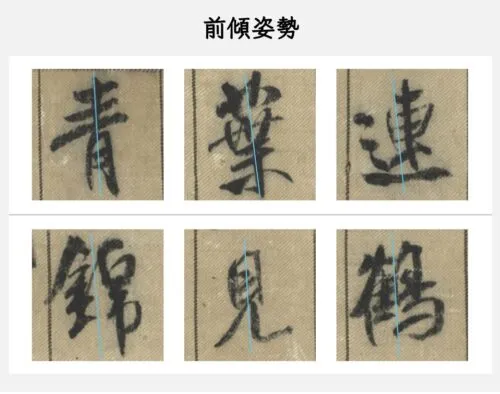 前傾姿勢
青 葉 連
錦 見 鶴